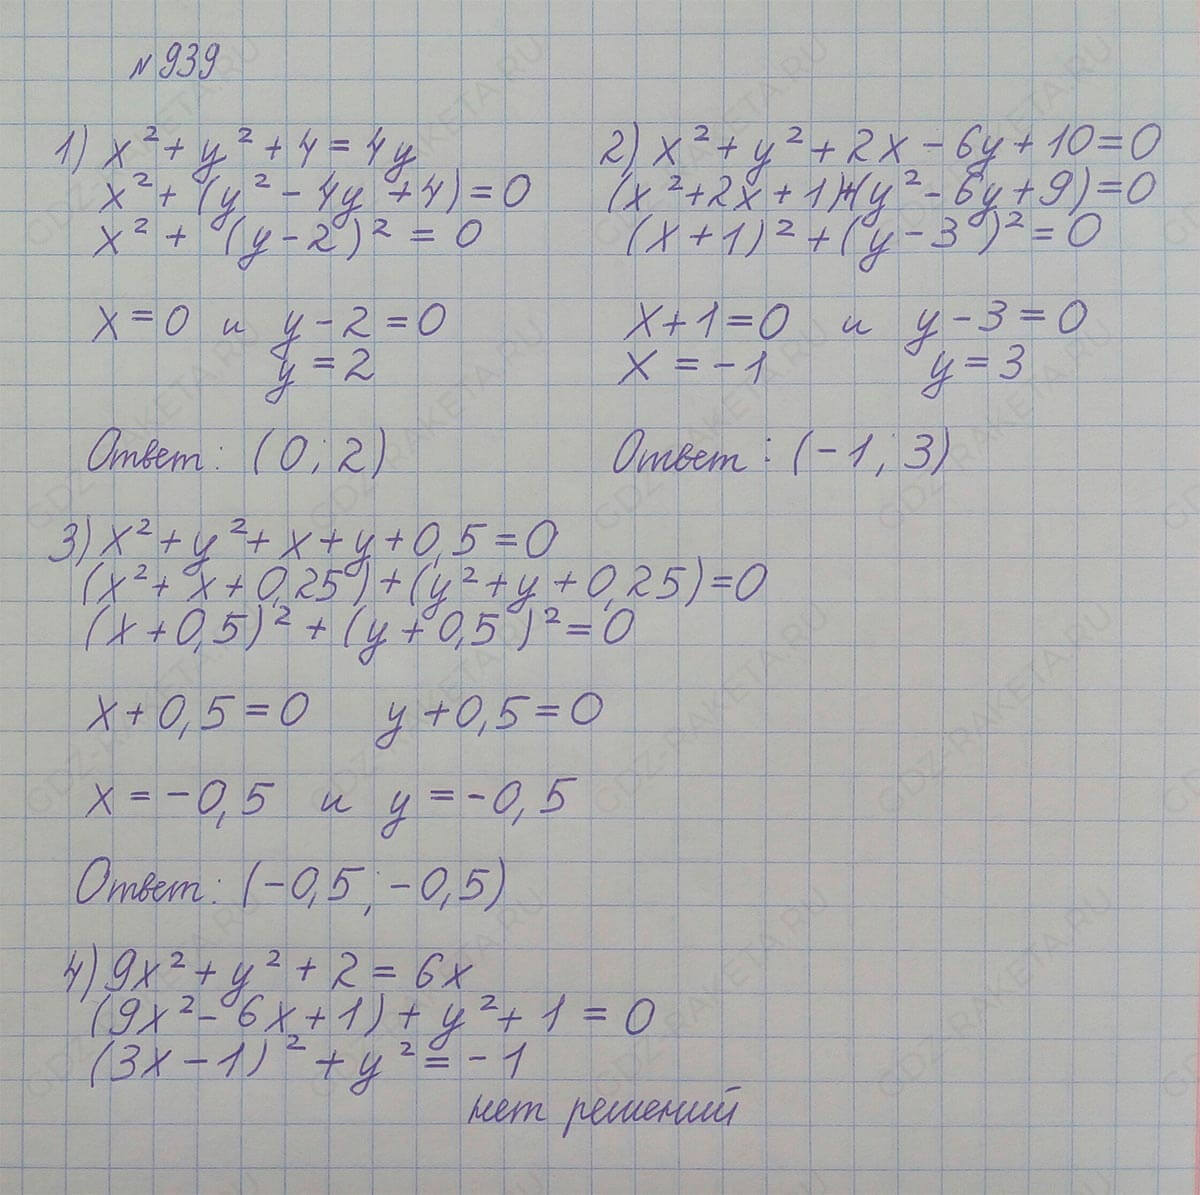 №939
1) x² + y² + 4 = 4y
x² + (y² - 4y + 4) = 0
x² + (y - 2)² = 0
x = 0 и y - 2 = 0
y = 2
Ответ: (0; 2)
2) x² + y² + 2x - 6y + 10 = 0
(x² + 2x + 1) + (y² - 6y + 9) = 0
(x + 1)² + (y - 3)² = 0
x + 1 = 0 и y - 3 = 0
x = -1 y = 3
Ответ: (-1; 3)
3) x² + y² + x + y + 0,5 = 0
(x² + x + 0,25) + (y² + y + 0,25) = 0
(x + 0,5)² + (y + 0,5)² = 0
x + 0,5 = 0 y + 0,5 = 0
x = -0,5 и y = -0,5
Ответ: (-0,5; -0,5)
4) 9x² + y² + 2 = 6x
(9x² - 6x + 1) + y² + 1 = 0
(3x - 1)² + y² = -1
нет решений
GDZ-RAKETA.RU